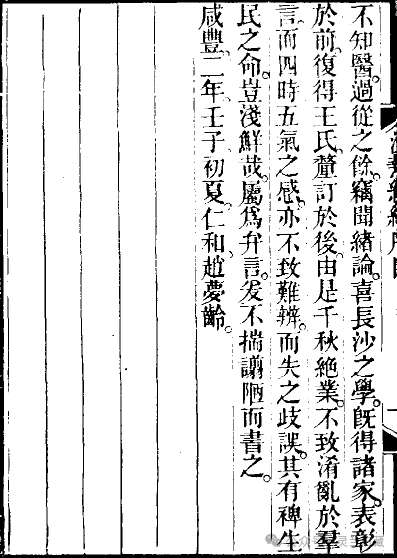 不知醫。過從之餘。竊聞緒論。喜長沙之學。旣得諸家。表彰
於前。復得王氏。釐訂於後。由是千秋絕業。不致淆亂於羣
言。而四時五氣之感。亦不致難辨。而失之歧誤。其有裨生
民之命。豈淺鮮哉。屬爲弁言。爰不揣譾陋而書之。
咸豐二年壬子初夏。仁和趙夢齡。